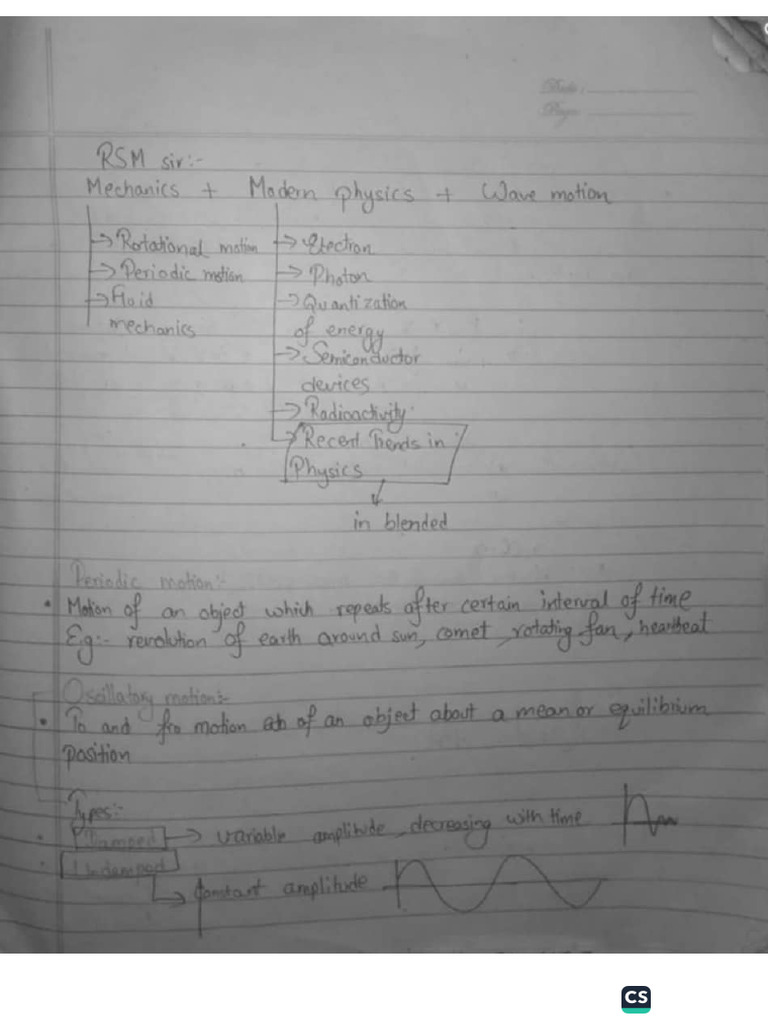 Date:
Page:
RSM sir:-
Mechanics + Modern physics + Wave motion
→ Rotational motion → Electron
→ Periodic motion → Photon
→ Fluid → Quantization
mechanics of energy
→ Semiconductor
devices
→ Radioactivity
→ Recent Trends in
Physics
in blended
Periodic motion:-
• Motion of an object which repeats after certain interval of time
E.g:- revolution of earth around sun, comet, rotating fan, heartbeat
Oscillatory motion:-
• To and fro motion of an object about a mean or equilibrium
position
Types:-
• Damped → variable amplitude, decreasing with time
• Undamped
→ constant amplitude
CS